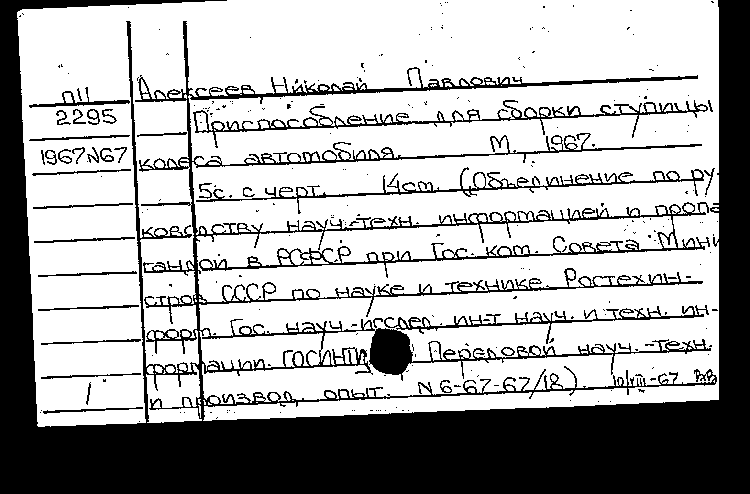 П11 Алексеев, Николай Павлович
2295 Приспособление для сборки ступицы
1967 N67 колеса автомобиля. М., 1967.
5с. с черт. 14см. (Объединение по ру-
ководству науч.-техн. информацией и пропа
гандой в РСФСР при Гос. ком. Совета Мини
стров СССР по науке и технике. Ростехин-
форм. Гос. науч.-исслед. ин-т науч. и техн. ин-
формации. ГОСИНТИ Передовой науч.-техн.
1 и производ. опыт. N 6-67-67/18). 10/VIII-67